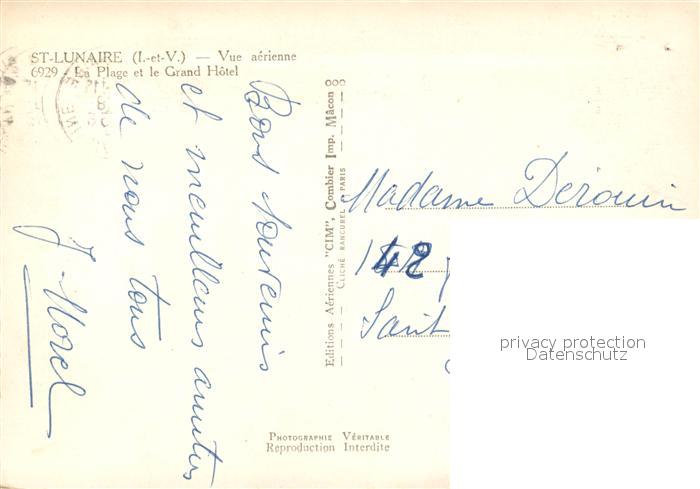 ST-LUNAIRE (I.-et-V.) — Vue aérienne
6929 - La Plage et le Grand Hôtel
Bons souvenirs
et meilleures amitiés
de nous tous
J. Morel
Editions Aériennes "CIM", Combier Imp. Mâcon
CLICHÉ RANCUREL - PARIS
Madame Derouin
42
Saint
privacy protection
Datenschutz
PHOTOGRAPHIE VÉRITABLE
Reproduction Interdite